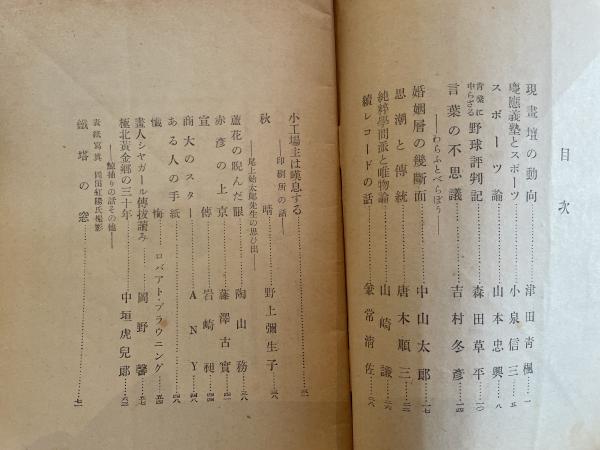 目次
現畫壇の動向……津田青楓……一
慶應義塾とスポーツ……小泉信三……五
スポーツ論……山本忠興……八
背綮に中らざる 野球評判記……森田草平……一〇
言葉の不思議……吉村冬彦……一四
――わらふとべらぼう――
婚姻層の幾斷面……中山太郎……一七
思潮と傳統……唐木順三……二二
純粹學問派と唯物論……山崎謙……二六
續レコードの話……兼常淸佐……二八
小工場主は嘆息する……三一
――印刷所の話――
秋晴……野上彌生子……三六
――尾上始太郎先生の思ひ出――
蘆花の睨んだ眼……陶山務……三八
赤彦の上京……藤澤古實……四一
宣傳……岩崎昶……四四
商大のスター……ANY……四六
ある人の手紙……四八
懺悔……ロバアト・ブラウニング……五四
畫人シヤガール傳拔讀み……岡野馨……五七
極北黃金鄕の三十年……中垣虎兒郎……六二
――鯨捕りの話その他――
表紙寫眞 岡田紅陽氏撮影
鐵塔の窓……七一